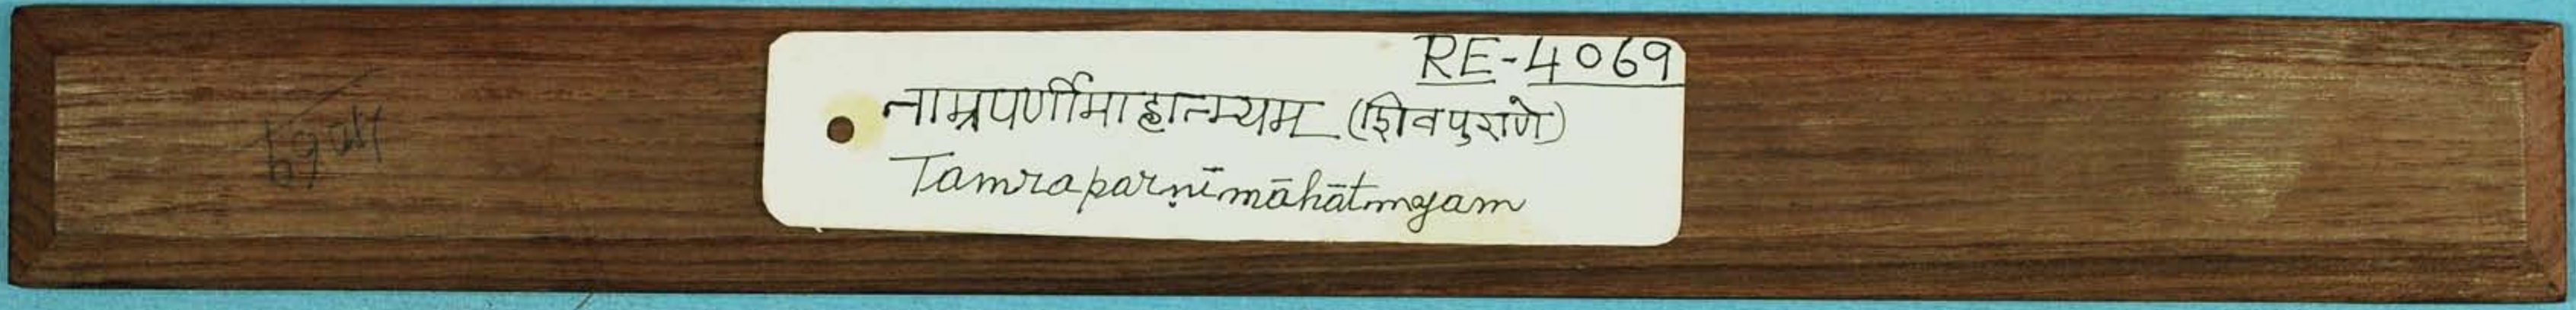 RE-4069
ताम्रपर्णीमाहात्म्यम् (शिवपुराणे)
Tamraparṇīmāhātmyam